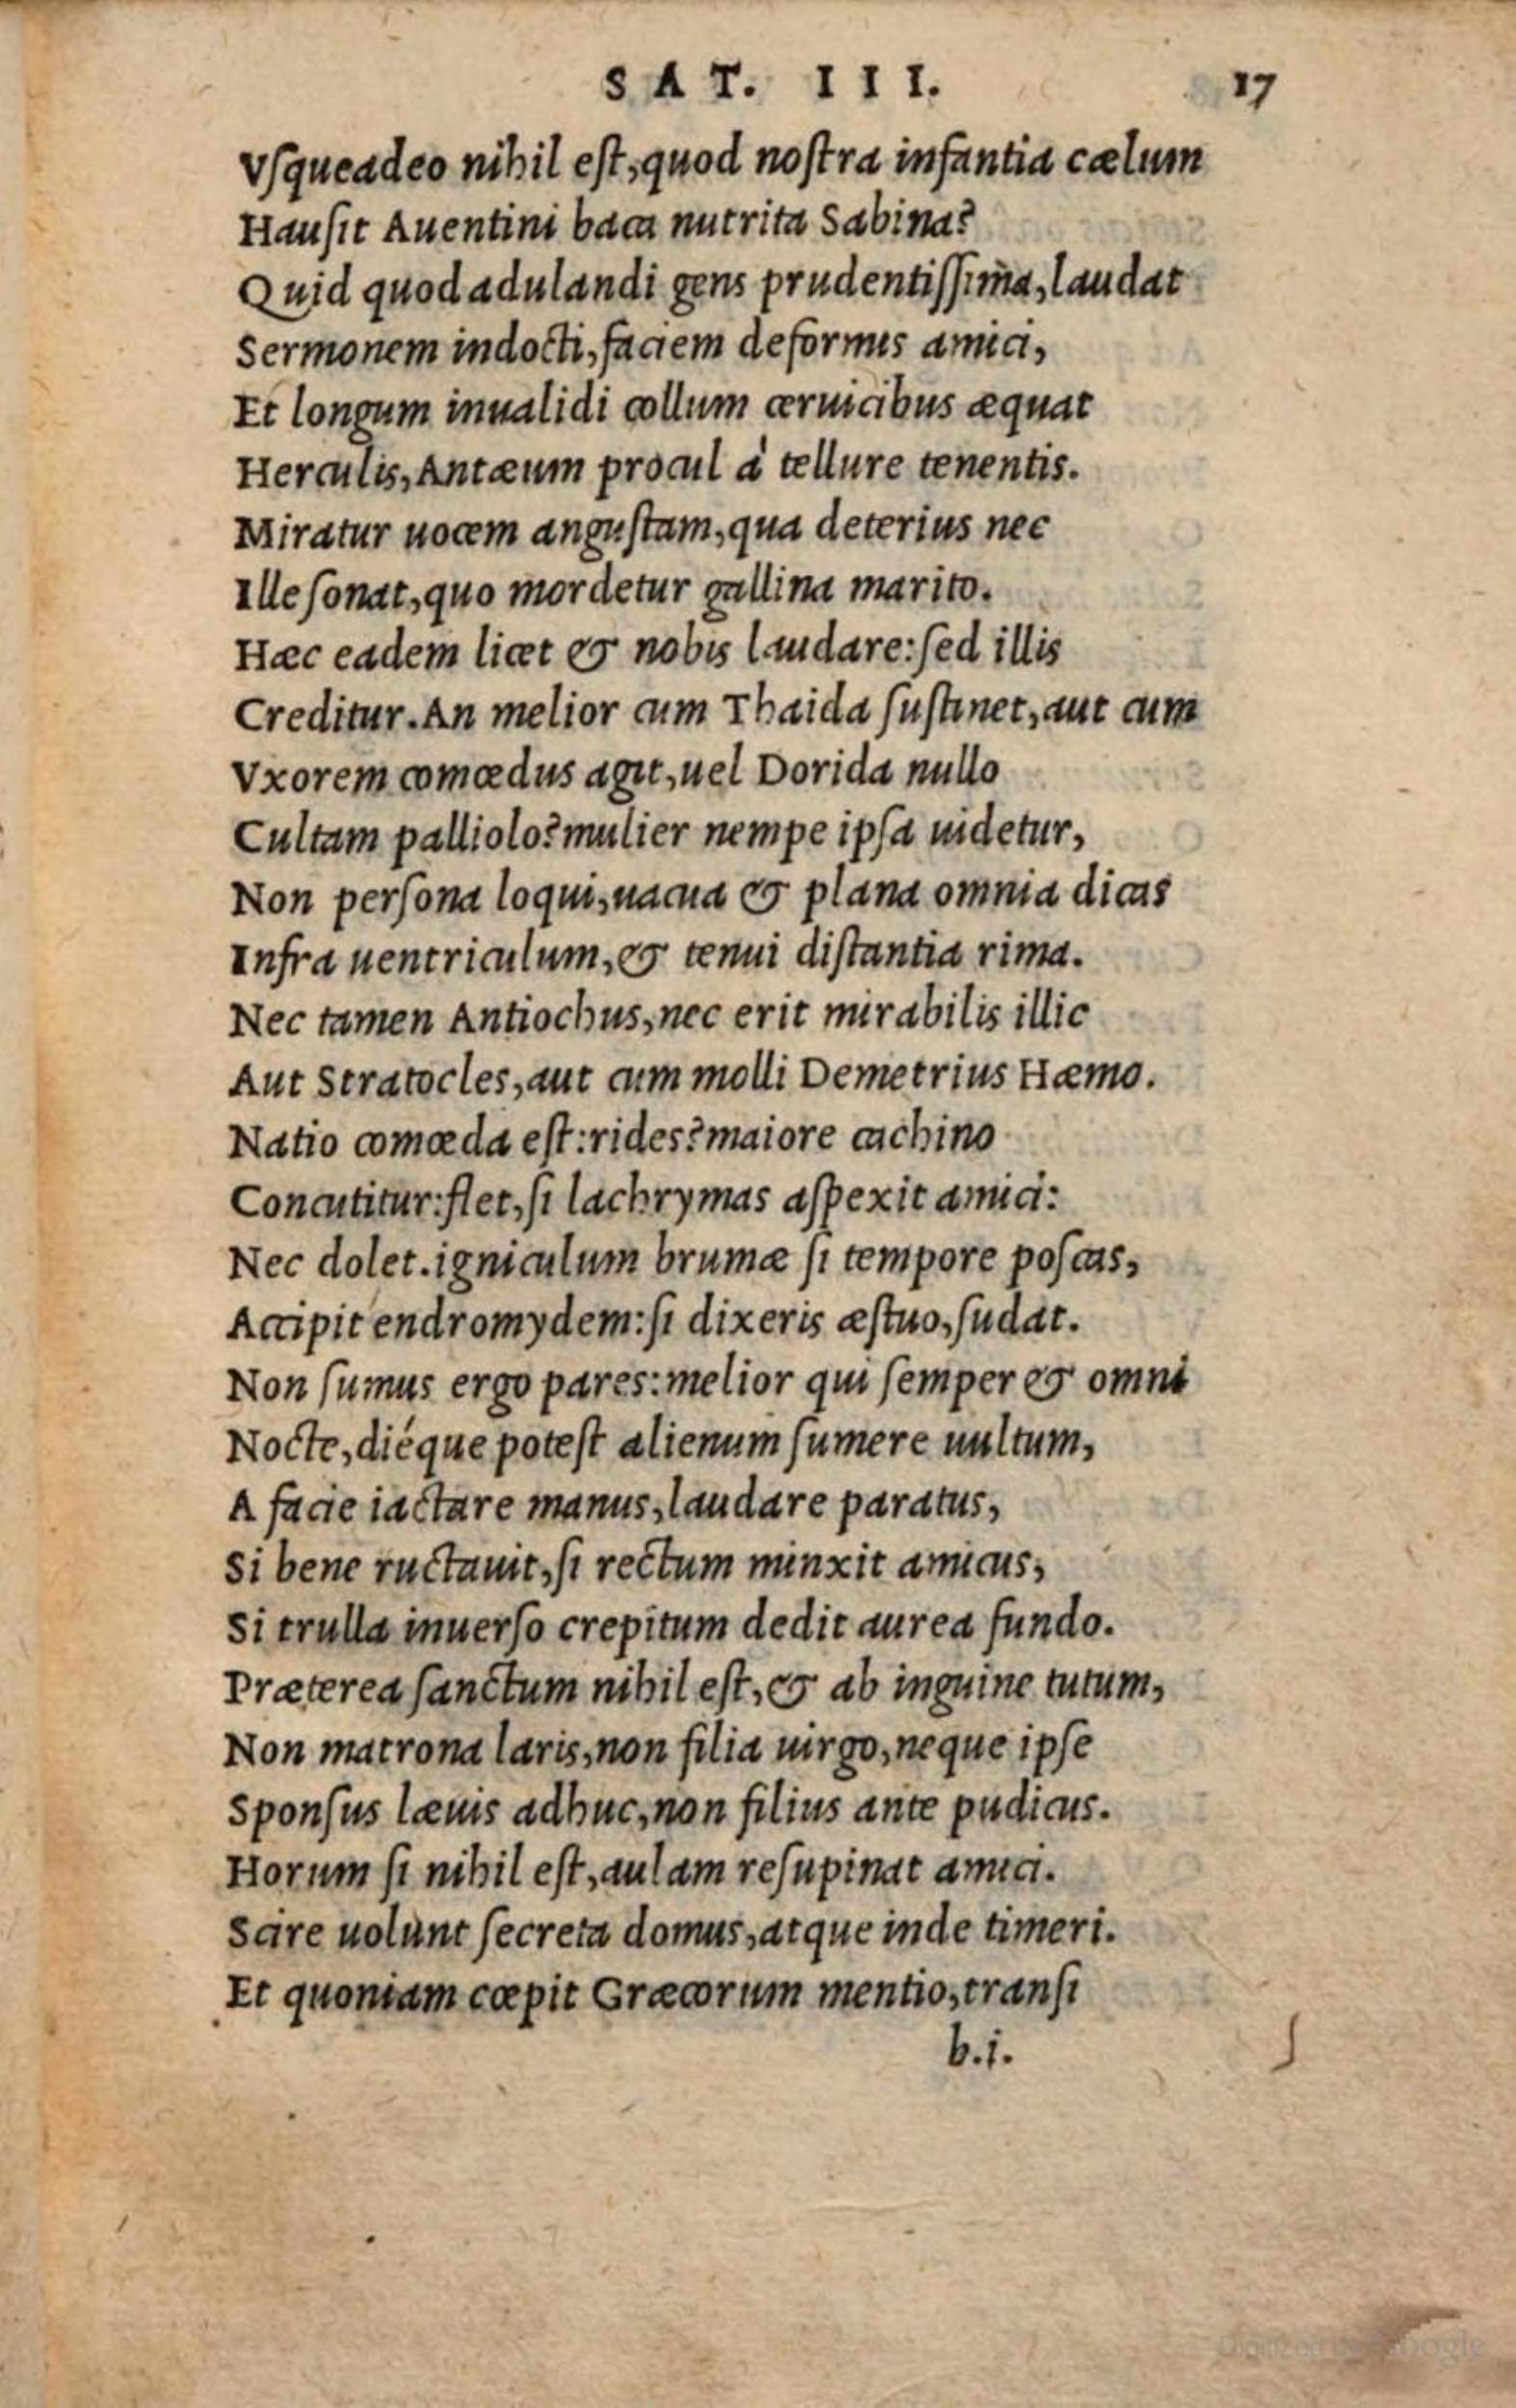 SAT. III. 17
Vſqueadeo nihil eſt, quod noſtra infantia cælum
Hauſit Auentini baca nutrita Sabina?
Quid quod adulandi gens prudentiſſima, laudat
Sermonem indocti, faciem deformis amici,
Et longum inualidi collum ceruicibus æquat
Herculis, Antæum procul à tellure tenentis.
Miratur uocem anguſtam, qua deterius nec
Ille ſonat, quo mordetur gallina marito.
Hæc eadem licet & nobis laudare: ſed illis
Creditur. An melior cum Thaida ſuſtinet, aut cum
Vxorem comœdus agit, uel Dorida nullo
Cultam palliolo? mulier nempe ipſa uidetur,
Non perſona loqui, uacua & plana omnia dicas
Infra uentriculum, & tenui diſtantia rima.
Nec tamen Antiochus, nec erit mirabilis illic
Aut Stratocles, aut cum molli Demetrius Hæmo.
Natio comœda eſt: rides? maiore cachino
Concutitur: flet, ſi lachrymas aſpexit amici:
Nec dolet. igniculum brumæ ſi tempore poſcas,
Accipit endromydem: ſi dixeris æſtuo, ſudat.
Non ſumus ergo pares: melior qui ſemper & omni
Nocte, diéque poteſt alienum ſumere uultum,
A facie iactare manus, laudare paratus,
Si bene ructauit, ſi rectum minxit amicus,
Si trulla inuerſo crepitum dedit aurea fundo.
Præterea ſanctum nihil eſt, & ab inguine tutum,
Non matrona laris, non filia uirgo, neque ipſe
Sponſus læuis adhuc, non filius ante pudicus.
Horum ſi nihil eſt, aulam reſupinat amici.
Scire uolunt ſecreta domus, atque inde timeri.
Et quoniam cœpit Græcorum mentio, tranſi
b.i.
Digitized by Google